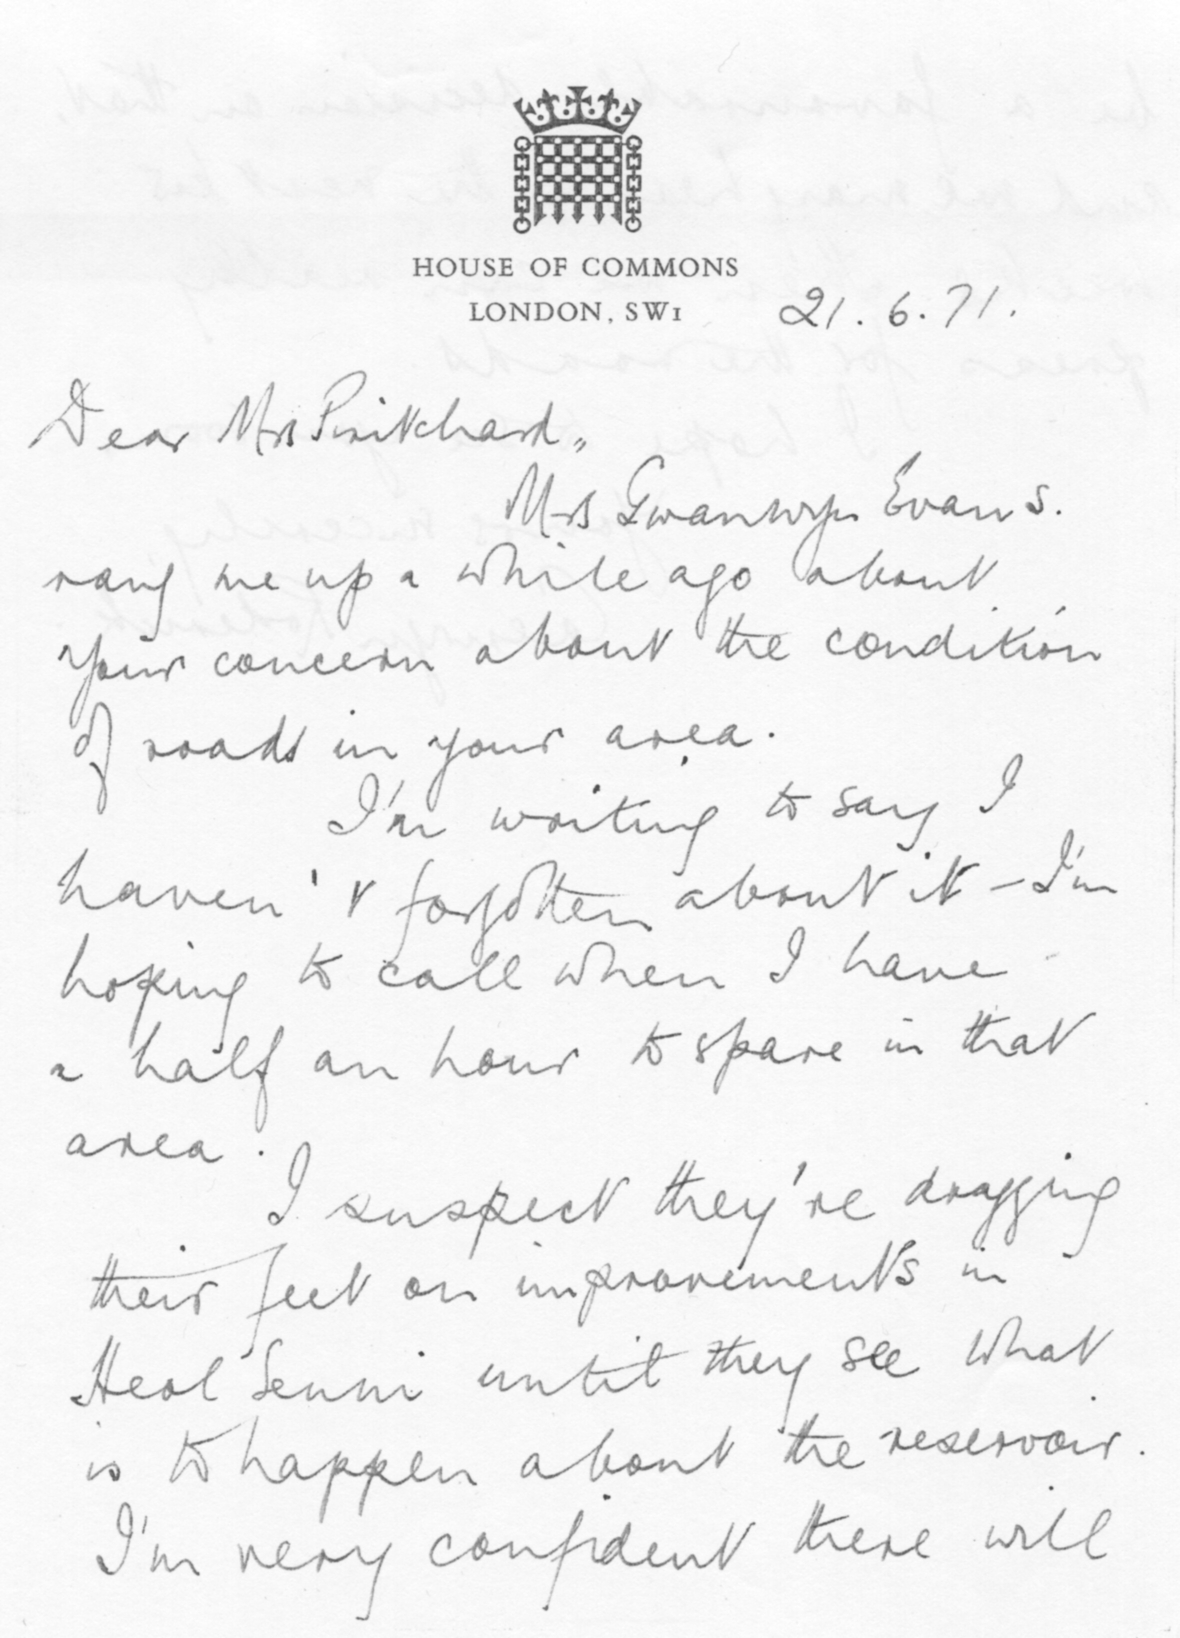 HOUSE OF COMMONS
LONDON, SW1
21.6.71.
Dear Mrs Pritchard,
Mrs Gwanwyn Evans.
rang me up a while ago about
your concern about the condition
of roads in your area.
I'm writing to say I
haven't forgotten about it – I'm
hoping to call when I have
a half an hour to spare in that
area.
I suspect they're dragging
their feet on improvements in
Heol Senni until they see what
is to happen about the reservoir.
I'm very confident there will